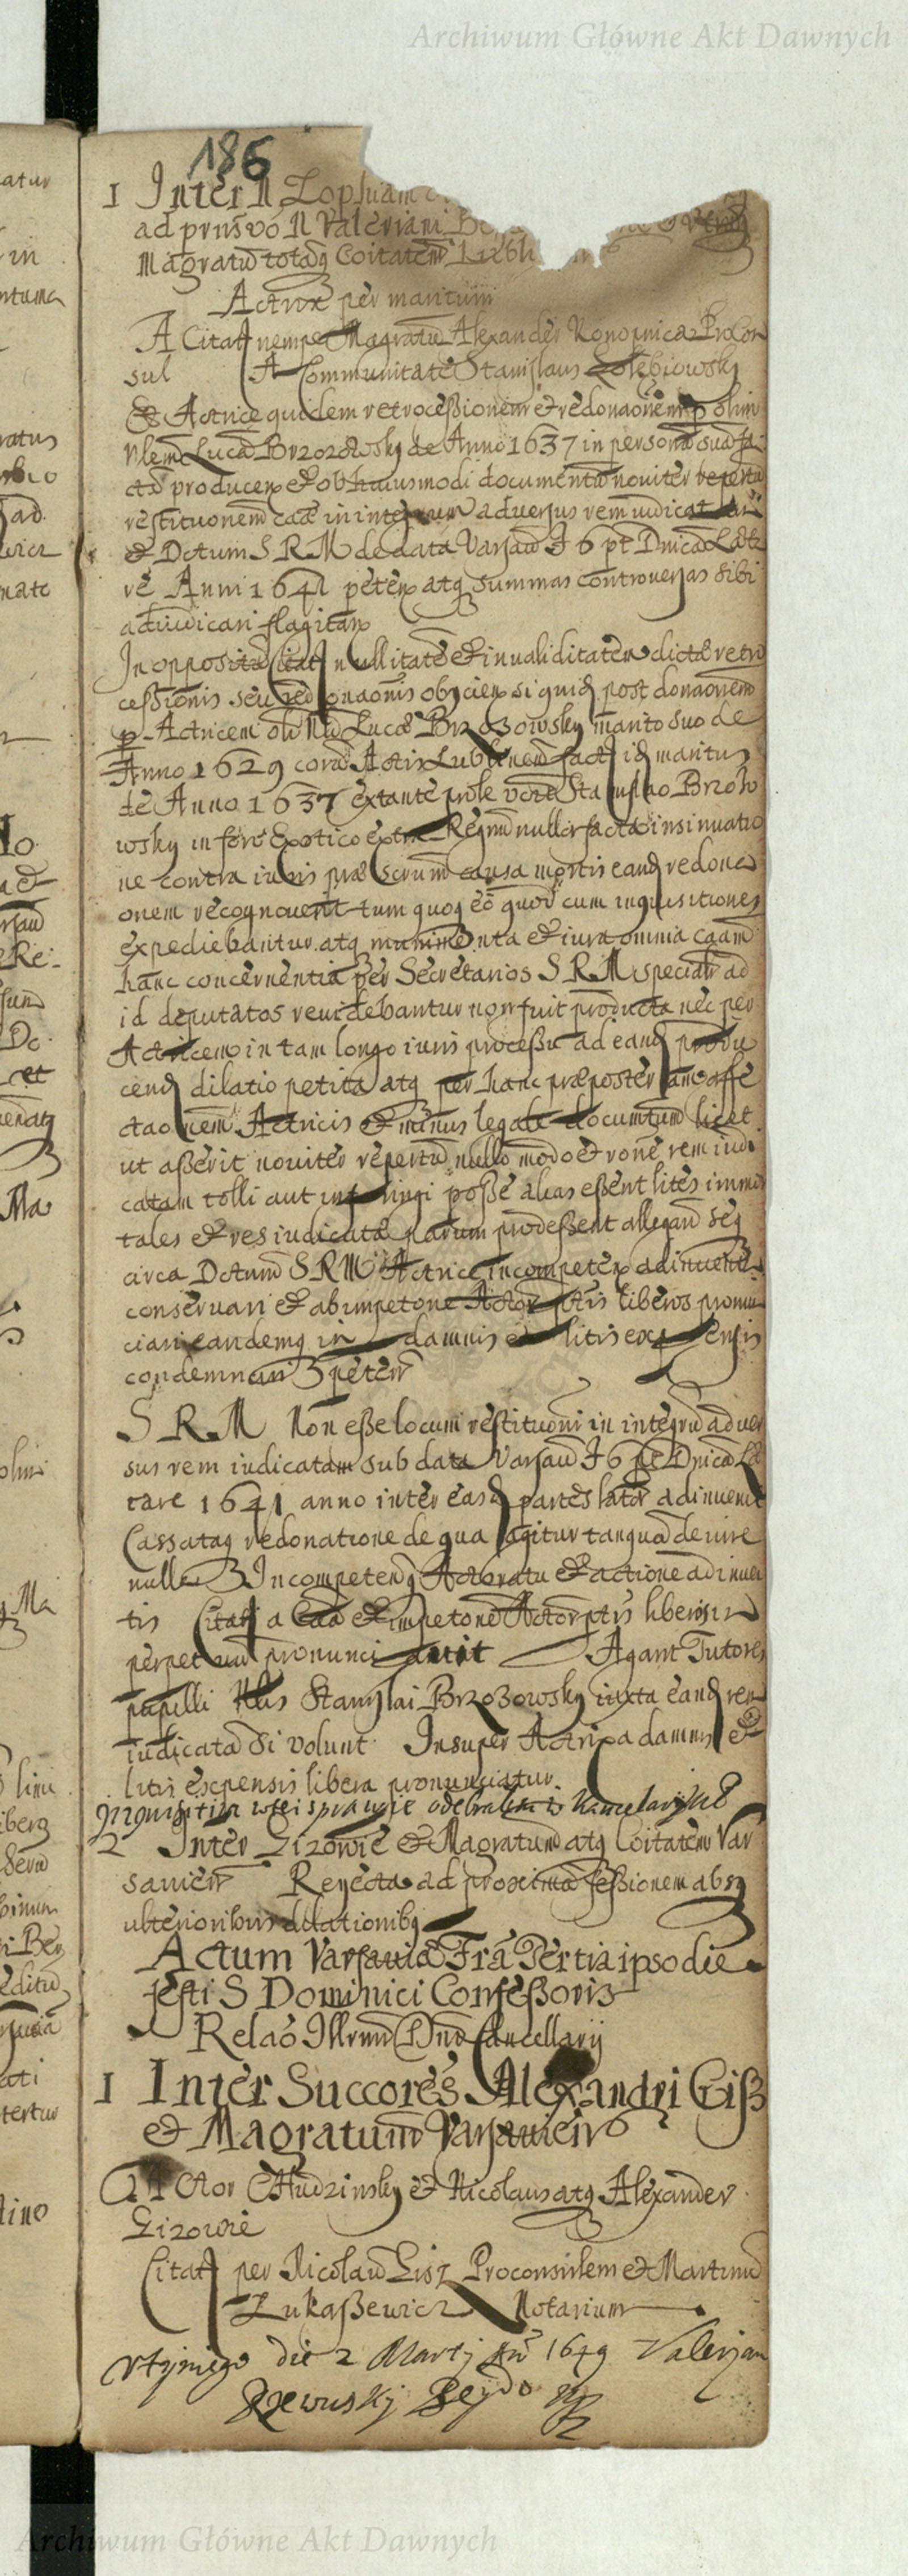 Archiwum Główne Akt Dawnych
186
1 Inter N Zophiam
ad prnsvo N Valeriani
Magratu totaq Coitatem
Actrix per maritum
A Citat nempe Magratu Alexander Konopnica Procon
sul A Communitate Stanislaus Gołębiowsky
Et Actrice quidem retrocessionem et redonaonem p olim
Nlem Luca Brzozowsky de Anno 1637 in persona sua fa
cta producen et ob huiusmodi documenta noviter reperta
restitutionem caae in integrum adversus rem iudicat
et Dctum S R M de data Varsaw F 6 pt Dnica Læta
re Anni 1641 peten atq summas controversas sibi
adiudicari flagitan
In opposito Citat nullitate et invaliditatem dictæ retro
cessionis seu redonaonis obyicien siquid post donaonem
p Actricem oli Luca Brzozowsky marito suo de
Anno 1629 cora Actis Lublinen fact id maritus
de Anno 1637 extante prole vore Stanislao Brzozo
wsky in foro Exotico extra Regnu nulla facta insinuatio
ne contra iuris præscrum causa mortis eand redona
onem recognouerit tum quoq eo quod cum inquisitiones
expediebantur atq munimenta et iura omnia caam
hanc concernentia per Secretarios S R M specialr ad
id deputatos reuidebantur non fuit producta nec per
Actricem in tam longo iuris processu ad eand produ
cend dilatio petita atq per hanc præposteram affe
ctaonem Actricis et minus legale documtum licet
ut asserit noviter repertu nullo modo et rone rem iudi
catam tolli aut infringi posse alias essent lites immor
tales et res iudicatæ parum prodessent allegand seq
circa Dctum S R M Actrice incompeten adinuent
conservari et ab impetone Actor ptis liberos pronun
ciari eandemq in damnis et litis expensis
condemnari peten
S R M Non esse locum restitutioni in integru adver
sus rem iudicatam sub data Varsaw F 6 pt Dnica Læ
tare 1641 anno inter easd partes lata adinuenit
Cassataq redonatione de qua agitur tanqua de iure
nulla Incompetenq Actoratu et actione adinuen
tis Citat a Caa et impetone Actor ptis liberos in
perpetuum pronunciauit Agant Tutores
pupilli Stanislai Brzozowsky iuxta eand rem
iudicata si volunt Insuper Actrix a damnis et
litis expensis libera pronunciatur
Inquisitia wtei sprawie odebrałem z Kancelaryiey
2 Inter Gizowie et Magratum atq Coitatem Var
savien Reyecta ad proxima sessionem absq
ulterioribus dilationibq
Actum Varsavia Fra Tertia ipso die
festi S Dominici Confessoris
Relao Illrmi Dni Cancellarij
1 Inter Succores Alexandri Giß
et Magratum Varsavien
Actor Chudzinsky et Nicolaus atq Alexander
Gizowie
Citat per Nicolau Gisz Proconsulem et Martinu
Łukaßewicz Notarium
die 2 Martij An 1649 Valerjan
Rzewuskj
Archiwum Główne Akt Dawnych